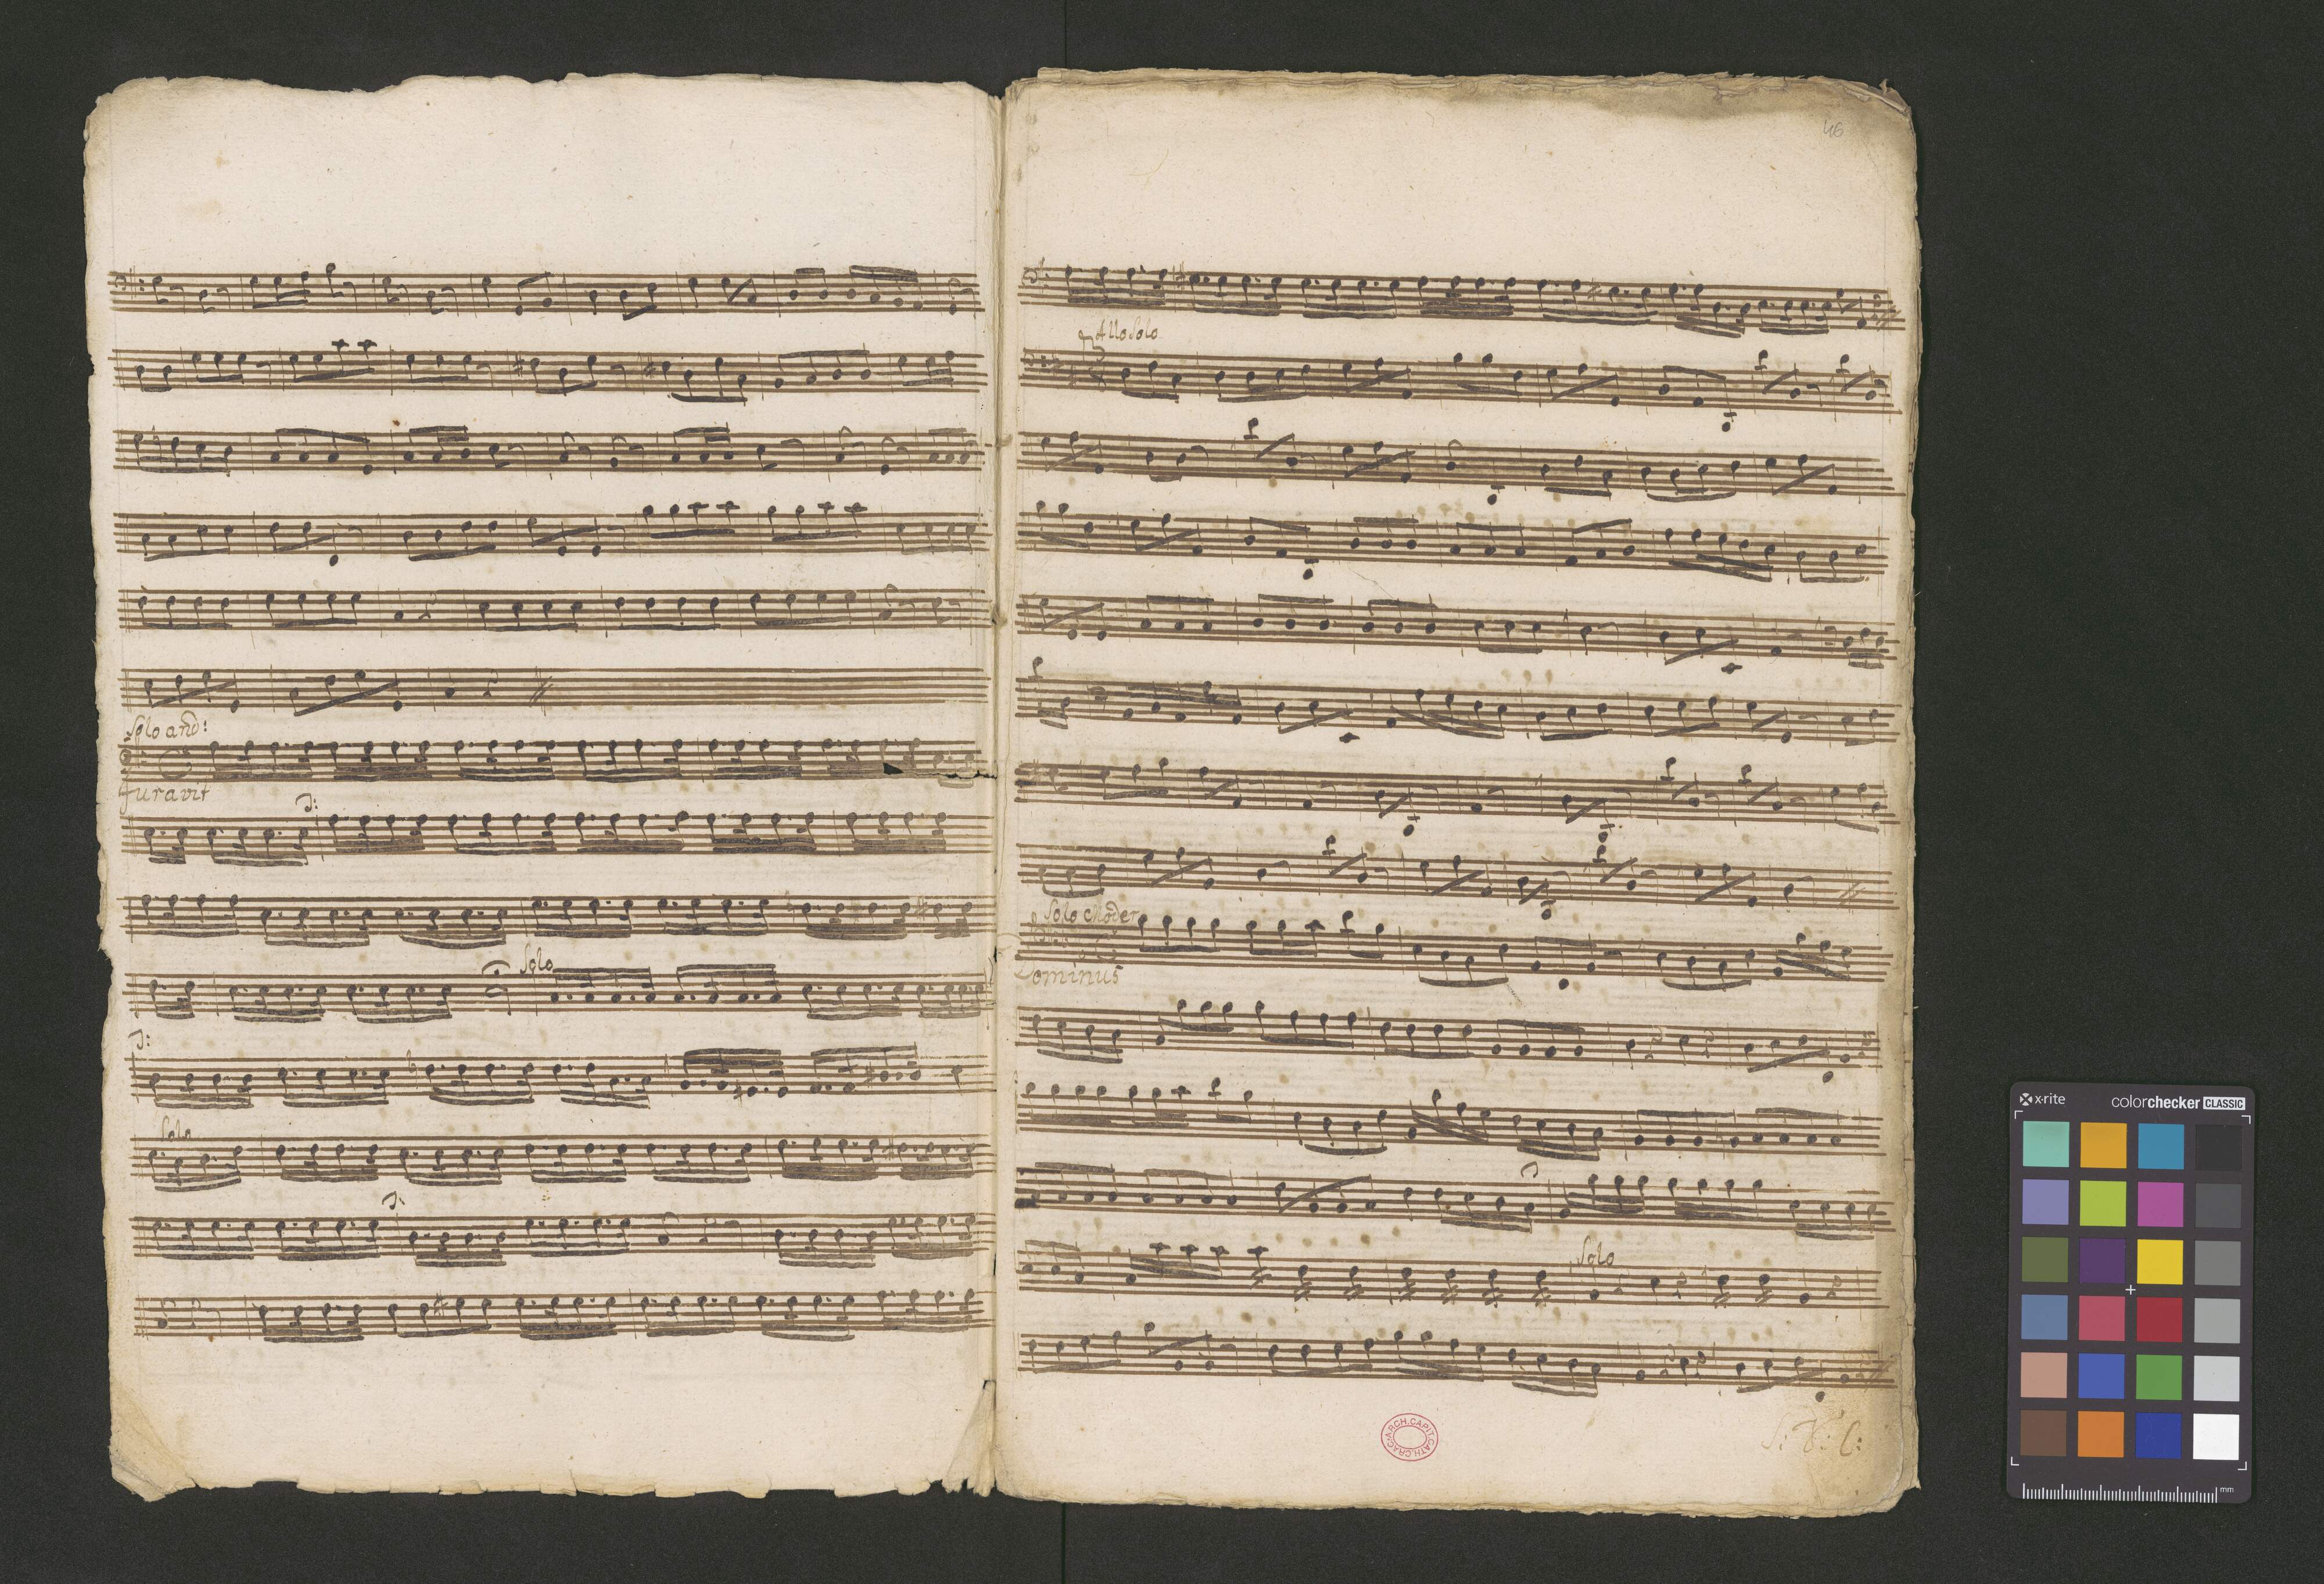 Solo and:
Juravit
Solo
Solo
46
Allo Solo
Solo Moder
Dominus
Solo
S: V: C:
ARCH. CAPIT. CATH. CRAC.
x-rite
colorchecker CLASSIC
mm